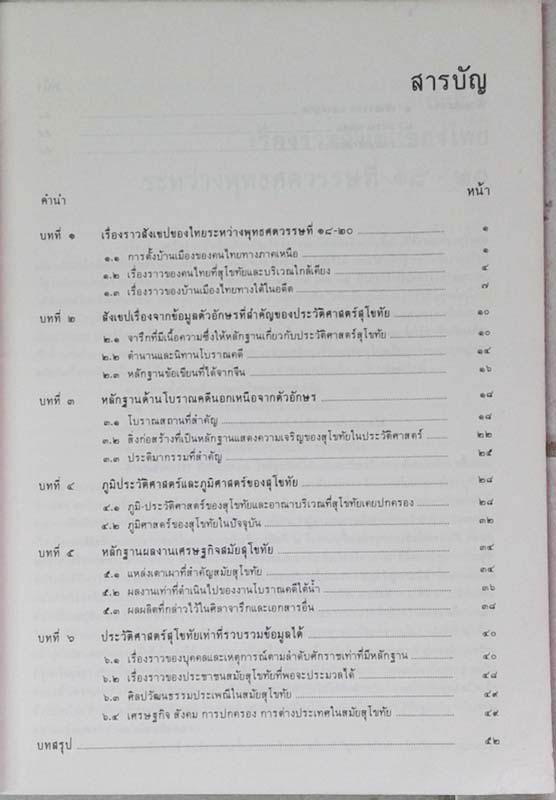 สารบัญ
หน้า
คำนำ
บทที่ ๑ เรื่องราวสังเขปของไทยระหว่างพุทธศตวรรษที่ ๑๘-๒๐ ๑
๑.๑ การตั้งบ้านเมืองของคนไทยทางภาคเหนือ ๑
๑.๒ เรื่องราวของคนไทยที่สุโขทัยและบริเวณใกล้เคียง ๔
๑.๓ เรื่องราวของบ้านเมืองไทยทางใต้ในอดีต ๗
บทที่ ๒ สังเขปเรื่องจากข้อมูลตัวอักษรที่สำคัญของประวัติศาสตร์สุโขทัย ๑๐
๒.๑ จารึกที่มีเนื้อความซึ่งให้หลักฐานเกี่ยวกับประวัติศาสตร์สุโขทัย ๑๐
๒.๒ ตำนานและนิทานโบราณคดี ๑๔
๒.๓ หลักฐานข้อเขียนที่ได้จากจีน ๑๖
บทที่ ๓ หลักฐานด้านโบราณคดีนอกเหนือจากตัวอักษร ๑๘
๓.๑ โบราณสถานที่สำคัญ ๑๘
๓.๒ สิ่งก่อสร้างที่เป็นหลักฐานแสดงความเจริญของสุโขทัยในประวัติศาสตร์ ๒๒
๓.๓ ประติมากรรมที่สำคัญ ๒๕
บทที่ ๔ ภูมิประวัติศาสตร์และภูมิศาสตร์ของสุโขทัย ๒๘
๔.๑ ภูมิ-ประวัติศาสตร์ของสุโขทัยและอาณาบริเวณที่สุโขทัยเคยปกครอง ๒๘
๔.๒ ภูมิศาสตร์ของสุโขทัยในปัจจุบัน ๓๒
บทที่ ๕ หลักฐานผลงานเศรษฐกิจสมัยสุโขทัย ๓๔
๕.๑ แหล่งเตาเผาที่สำคัญสมัยสุโขทัย ๓๔
๕.๒ ผลงานเท่าที่ดำเนินไปของงานโบราณคดีใต้น้ำ ๓๖
๕.๓ ผลผลิตที่กล่าวไว้ในศิลาจารึกและเอกสารอื่น ๓๘
บทที่ ๖ ประวัติศาสตร์สุโขทัยเท่าที่รวบรวมข้อมูลได้ ๔๐
๖.๑ เรื่องราวของบุคคลและเหตุการณ์ตามลำดับศักราชเท่าที่มีหลักฐาน ๔๐
๖.๒ เรื่องราวของประชาชนสมัยสุโขทัยที่พอจะประมวลได้ ๔๘
๖.๓ ศิลปวัฒนธรรมประเพณีในสมัยสุโขทัย ๔๙
๖.๔ เศรษฐกิจ สังคม การปกครอง การต่างประเทศในสมัยสุโขทัย ๔๙
บทสรุป ๕๒